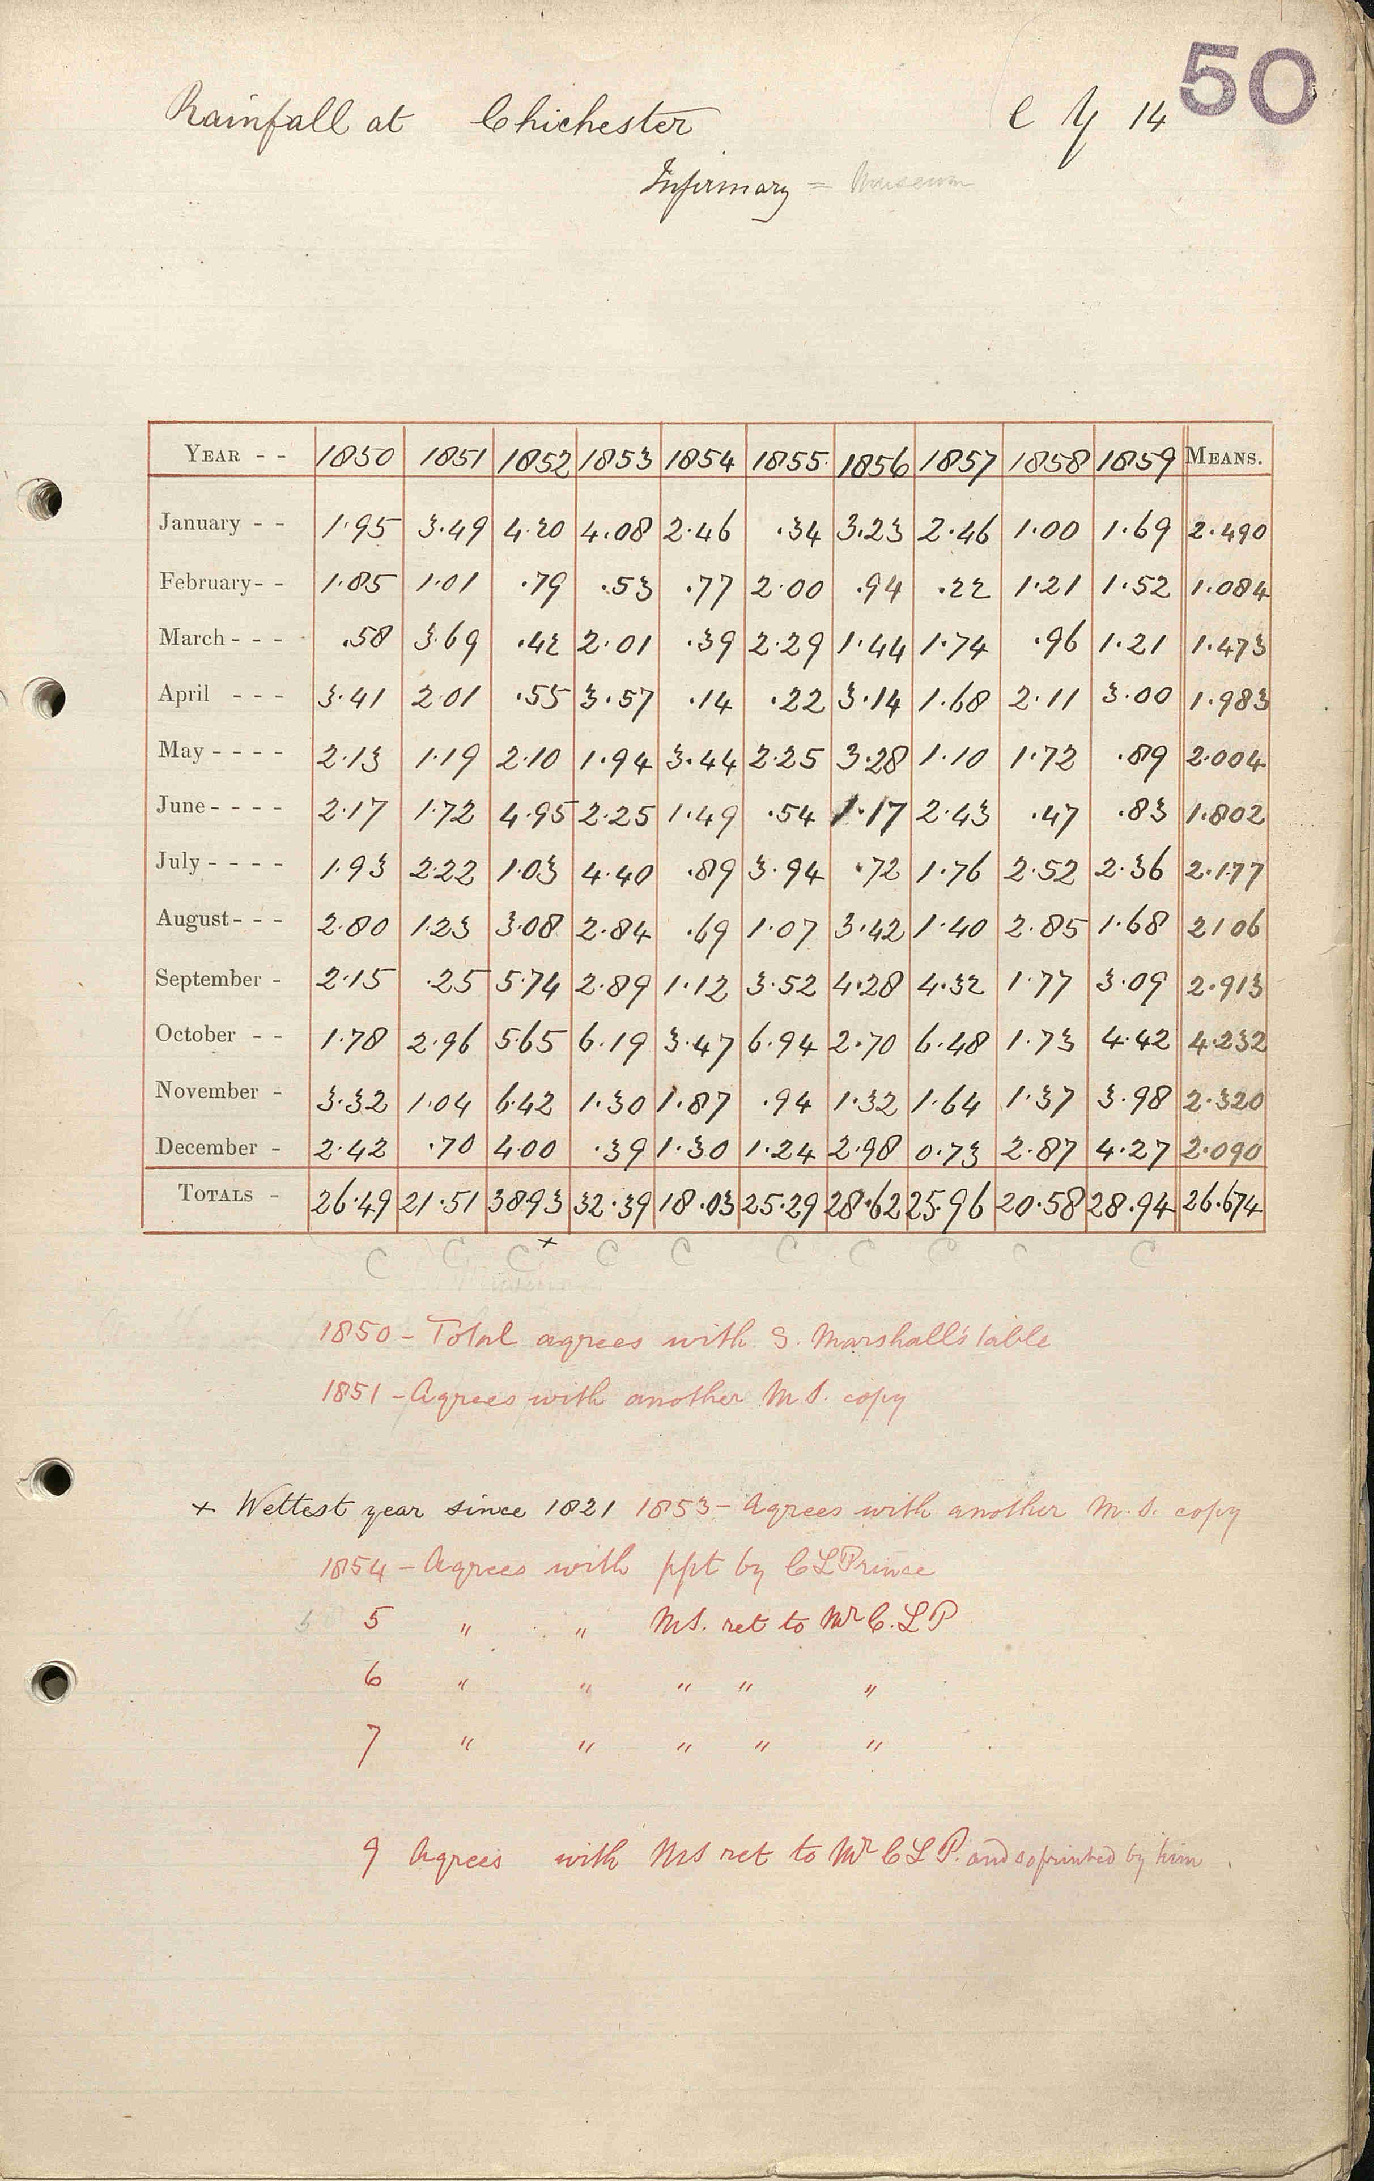 50
Rainfall at Chichester C Y 14
Infirmary = Museum
YEAR - - 1850 1851 1852 1853 1854 1855 1856 1857 1858 1859 MEANS.
January - - 1.95 3.49 4.20 4.08 2.46 .34 3.23 2.46 1.00 1.69 2.490
February - - 1.85 1.01 .79 .53 .77 2.00 .94 .22 1.21 1.52 1.084
March - - - .58 3.69 .42 2.01 .39 2.29 1.44 1.74 .96 1.21 1.473
April - - - 3.41 2.01 .55 3.57 .14 .22 3.14 1.68 2.11 3.00 1.983
May - - - - 2.13 1.19 2.10 1.94 3.44 2.25 3.28 1.10 1.72 .89 2.004
June - - - - 2.17 1.72 4.95 2.25 1.49 .54 1.17 2.43 .47 .83 1.802
July - - - - 1.93 2.22 1.03 4.40 .89 3.94 .72 1.76 2.52 2.36 2.177
August - - - 2.80 1.23 3.08 2.84 .69 1.07 3.42 1.40 2.85 1.68 2106
September - 2.15 .25 5.74 2.89 1.12 3.52 4.28 4.32 1.77 3.09 2.913
October - - 1.78 2.96 5.65 6.19 3.47 6.94 2.70 6.48 1.73 4.42 4.232
November - 3.32 1.04 6.42 1.30 1.87 .94 1.32 1.64 1.37 3.98 2.320
December - 2.42 .70 4.00 .39 1.30 1.24 2.98 0.73 2.87 4.27 2.090
TOTALS - 26.49 21.51 38.93 32.39 18.03 25.29 28.62 25.96 20.58 28.94 26.674
C C C x C C C C C C C
1850 - Total agrees with S. Marshall's table
1851 - Agrees with another M S. copy
x Wettest year since 1821 1853 - Agrees with another M. S. copy
1854 - Agrees with ppt by C L Prince
5 " " MS. ret to Mr C. L P
6 " " " " "
7 " " " " "
9 Agrees with MS ret to Mr C L P. and so printed by him